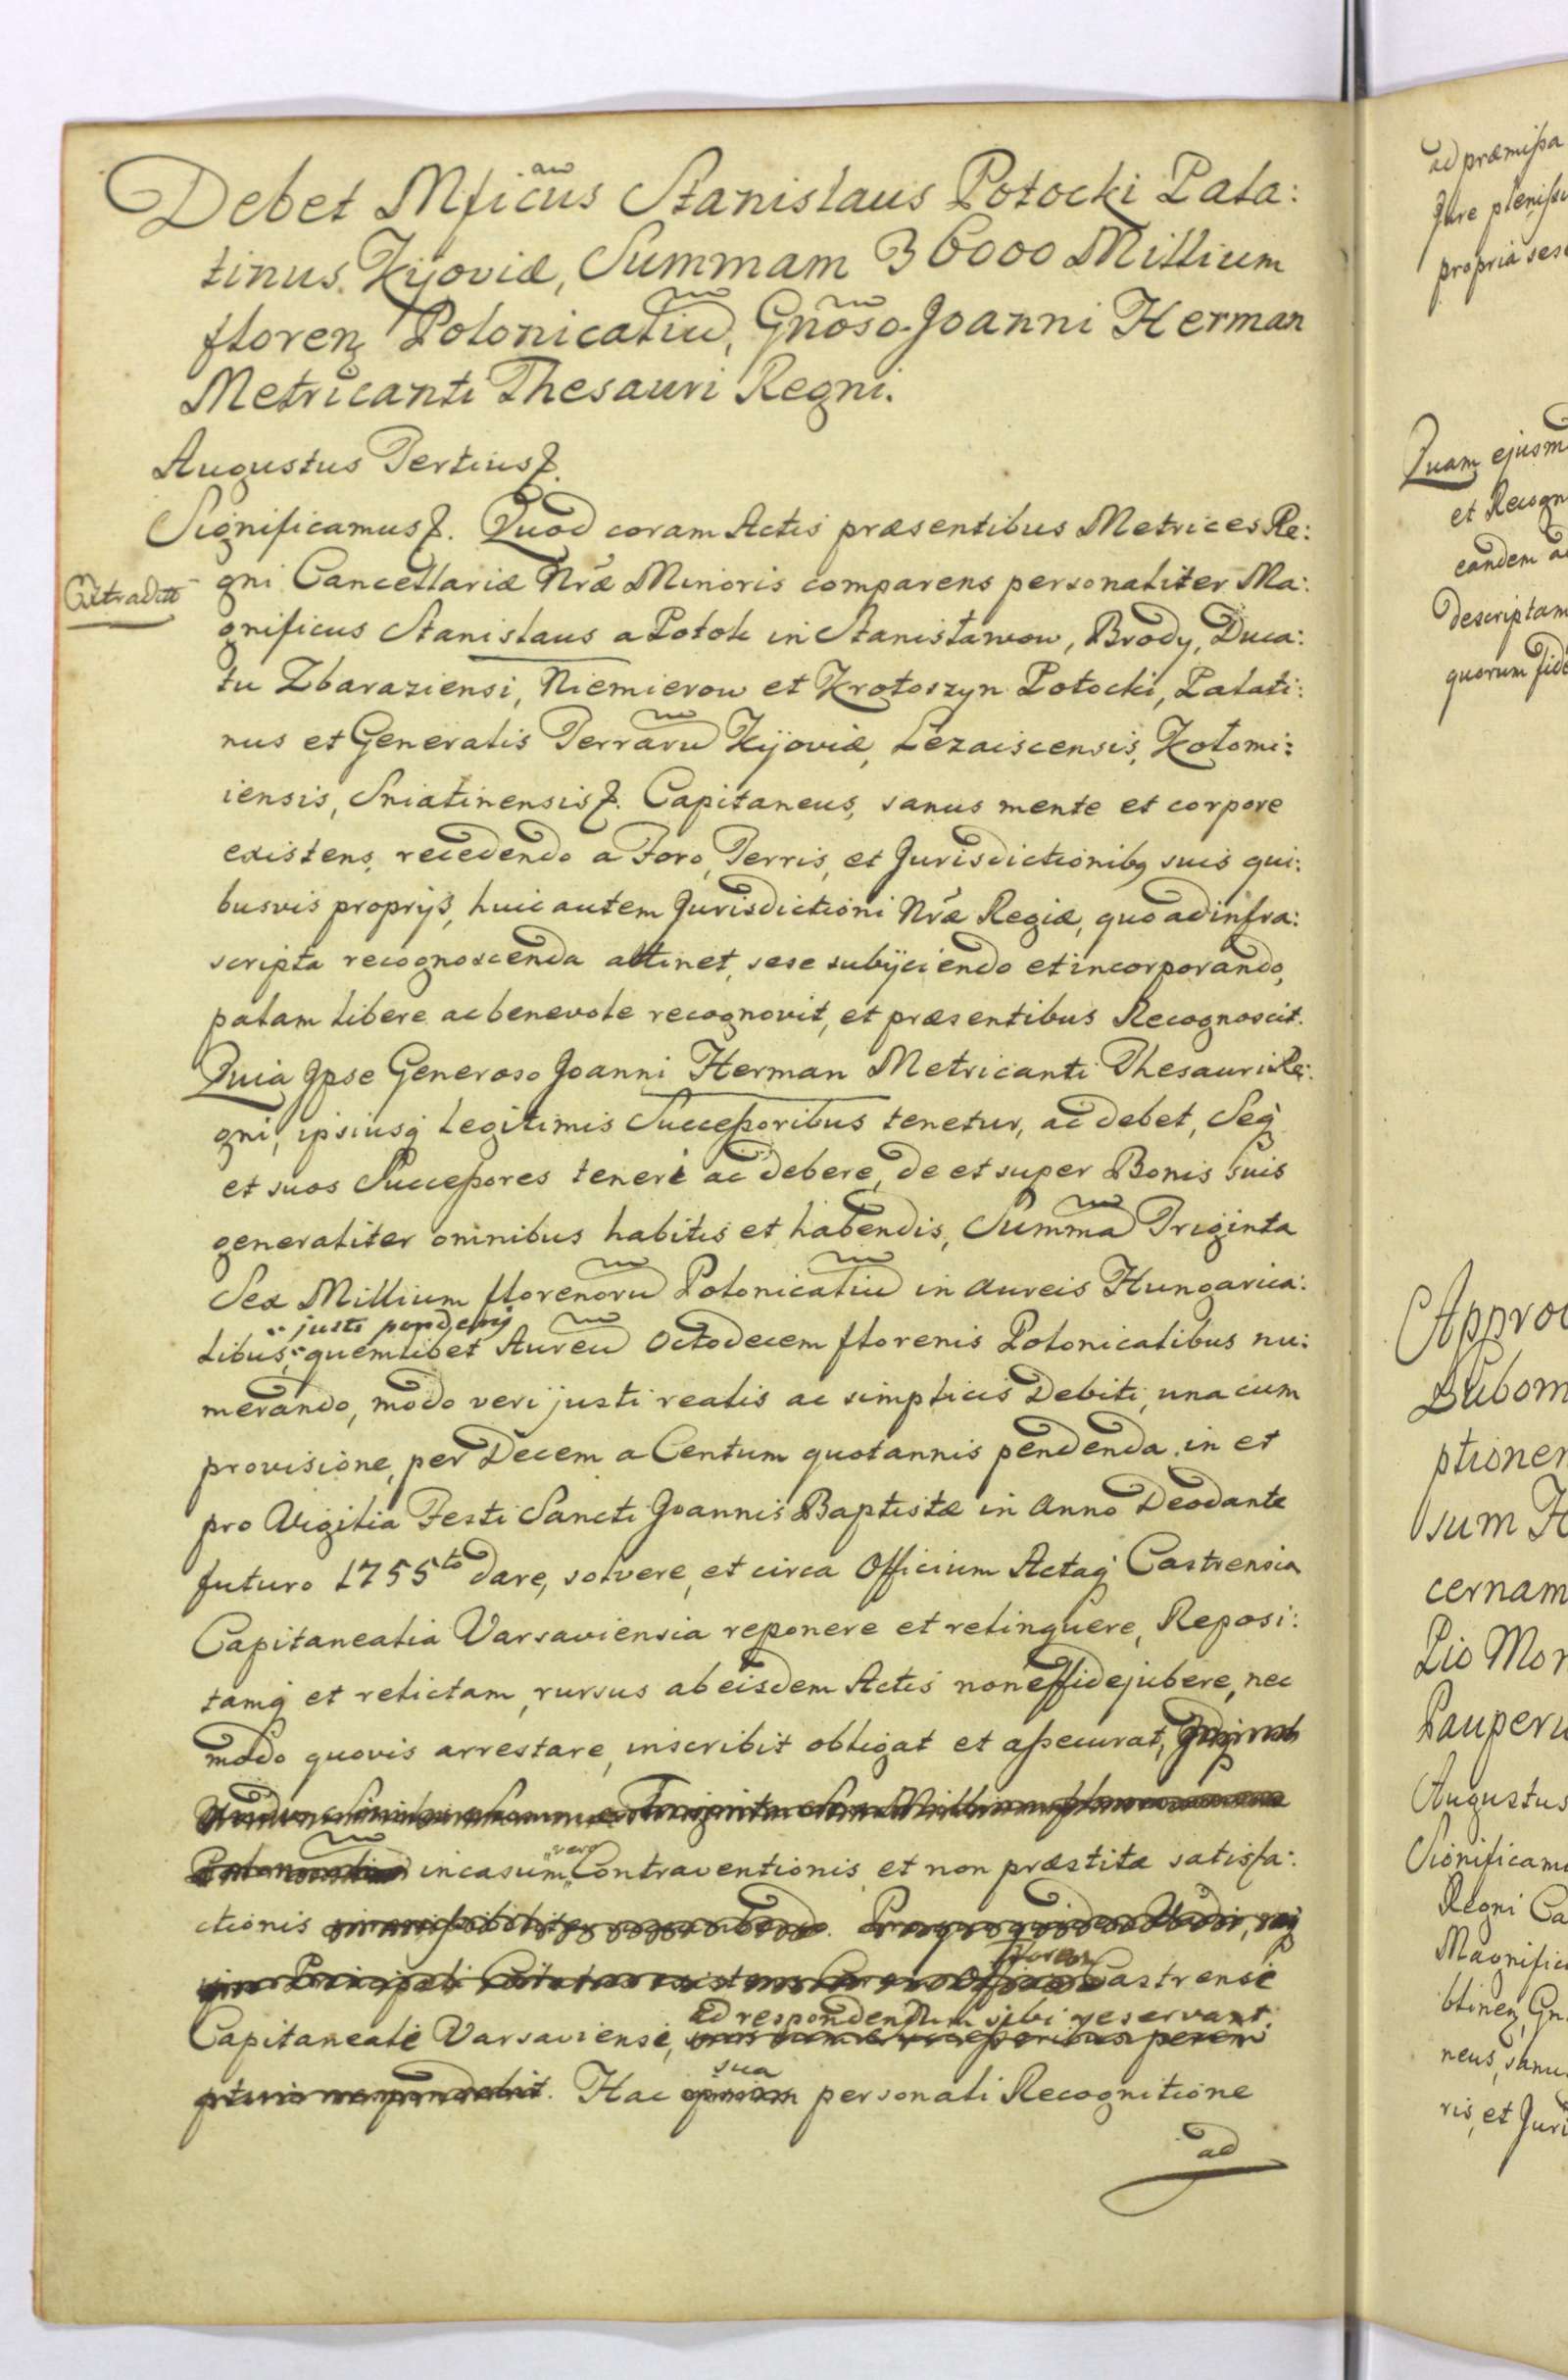 Debet Mficus Stanislaus Potocki Pala:
tinus Kijoviæ, Summam 36000 Millium
floren Polonicaliũ, Gnõso Joanni Herman
Metricanti Thesauri Regni.
Augustus Tertius
Significamus. Quod coram Actis præsentibus Metrices Re:
Extradit
gni Cancellariæ Nræ Minoris comparens personaliter Ma:
gnificus Stanislaus a Potok in Stanisławow, Brody, Duca:
tu Zbaraziensi, Niemierow et Krotoszyn Potocki, Palati:
nus et Generalis Terrarũ Kijoviæ, Lezaiscensis, Kołomi:
iensis, Sniatinensis. Capitaneus, sanus mente et corpore
existens, recedendo a Foro, Terris, et Jurisdictionibq suis qui:
busvis proprijs, huic autem Jurisdictioni Nræ Regiæ, quo ad infra:
scripta recognoscenda attinet, sese subijciendo et incorporando,
palam libere ac benevole recognovit, et præsentibus Recognoscit.
Quia Ipse Generoso Joanni Herman Metricanti Thesauri Re:
gni, ipsiusq legitimis Successoribus tenetur, ac debet, Seq
et suos Successores teneri ac debere, de et super Bonis suis
generaliter omnibus habitis et habendis, Summã Triginta
Sex Millium florenorũ Polonicaliũ in aureis Hungarica:
justi ponderis
libus, quemlibet Aureũ Octodecem florenis Polonicalibus nu:
merando, modo veri justi realis ac simplicis Debiti, una cum
provisione, per Decem a Centum quotannis pendenda in et
pro Vigilia Festi Sancti Joannis Baptistæ in Anno Deodante
futuro 1755to dare, solvere, et circa Officium Actaq Castrensia
Capitanealia Varsaviensia reponere et relinquere, Reposi:
tamq et relictam, rursus ab eisdem Actis non effidejubere, nec
modo quovis arrestare, inscribit obligat et assecurat,
Triginta Sex Millium
vero
Polonicaliũ in casum Contraventionis et non præstitæ satisfa:
ctionis
Forum
Castrense
ad respondendum sibi reservant.
Capitaneale Varsaviense,
sua
Hac personali Recognitione
ad
ad præmissa
Jure plenisse
propria ses
Quam ejusm
et Recogn
eandem a
descriptam
quorum fide
Approb
Lubom
ptionem
sum H
cernam
Pio Mon
Pauperu
Augustus
Significamu
Regni Ca
Magnifi
blinen, Gn
neus, sanu
ris, et Juri